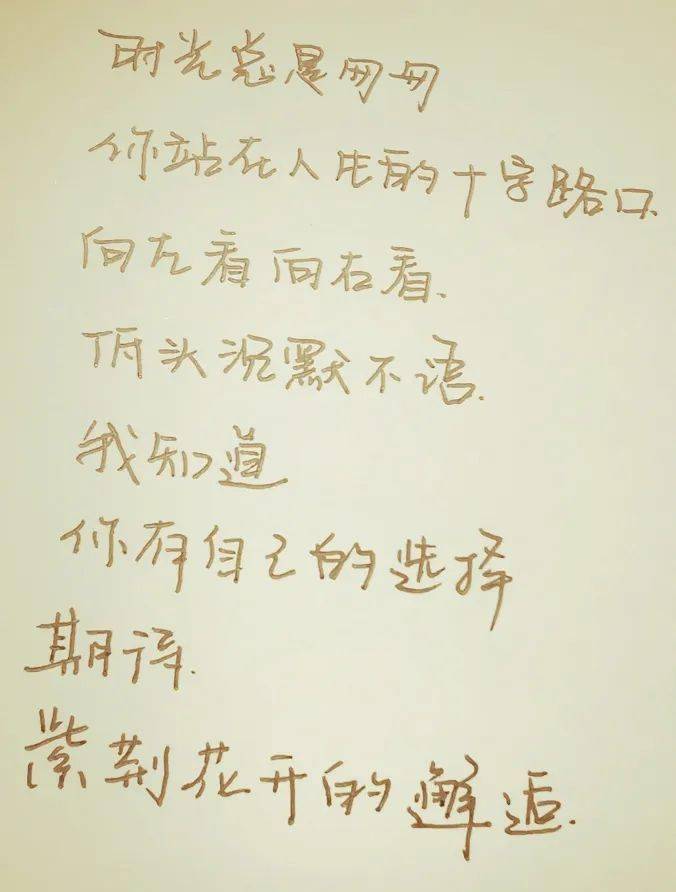 时光总是匆匆
你站在人生的十字路口.
向左看向右看.
低头沉默不语.
我知道
你有自己的选择
期译.
紫荆花开的邂逅.